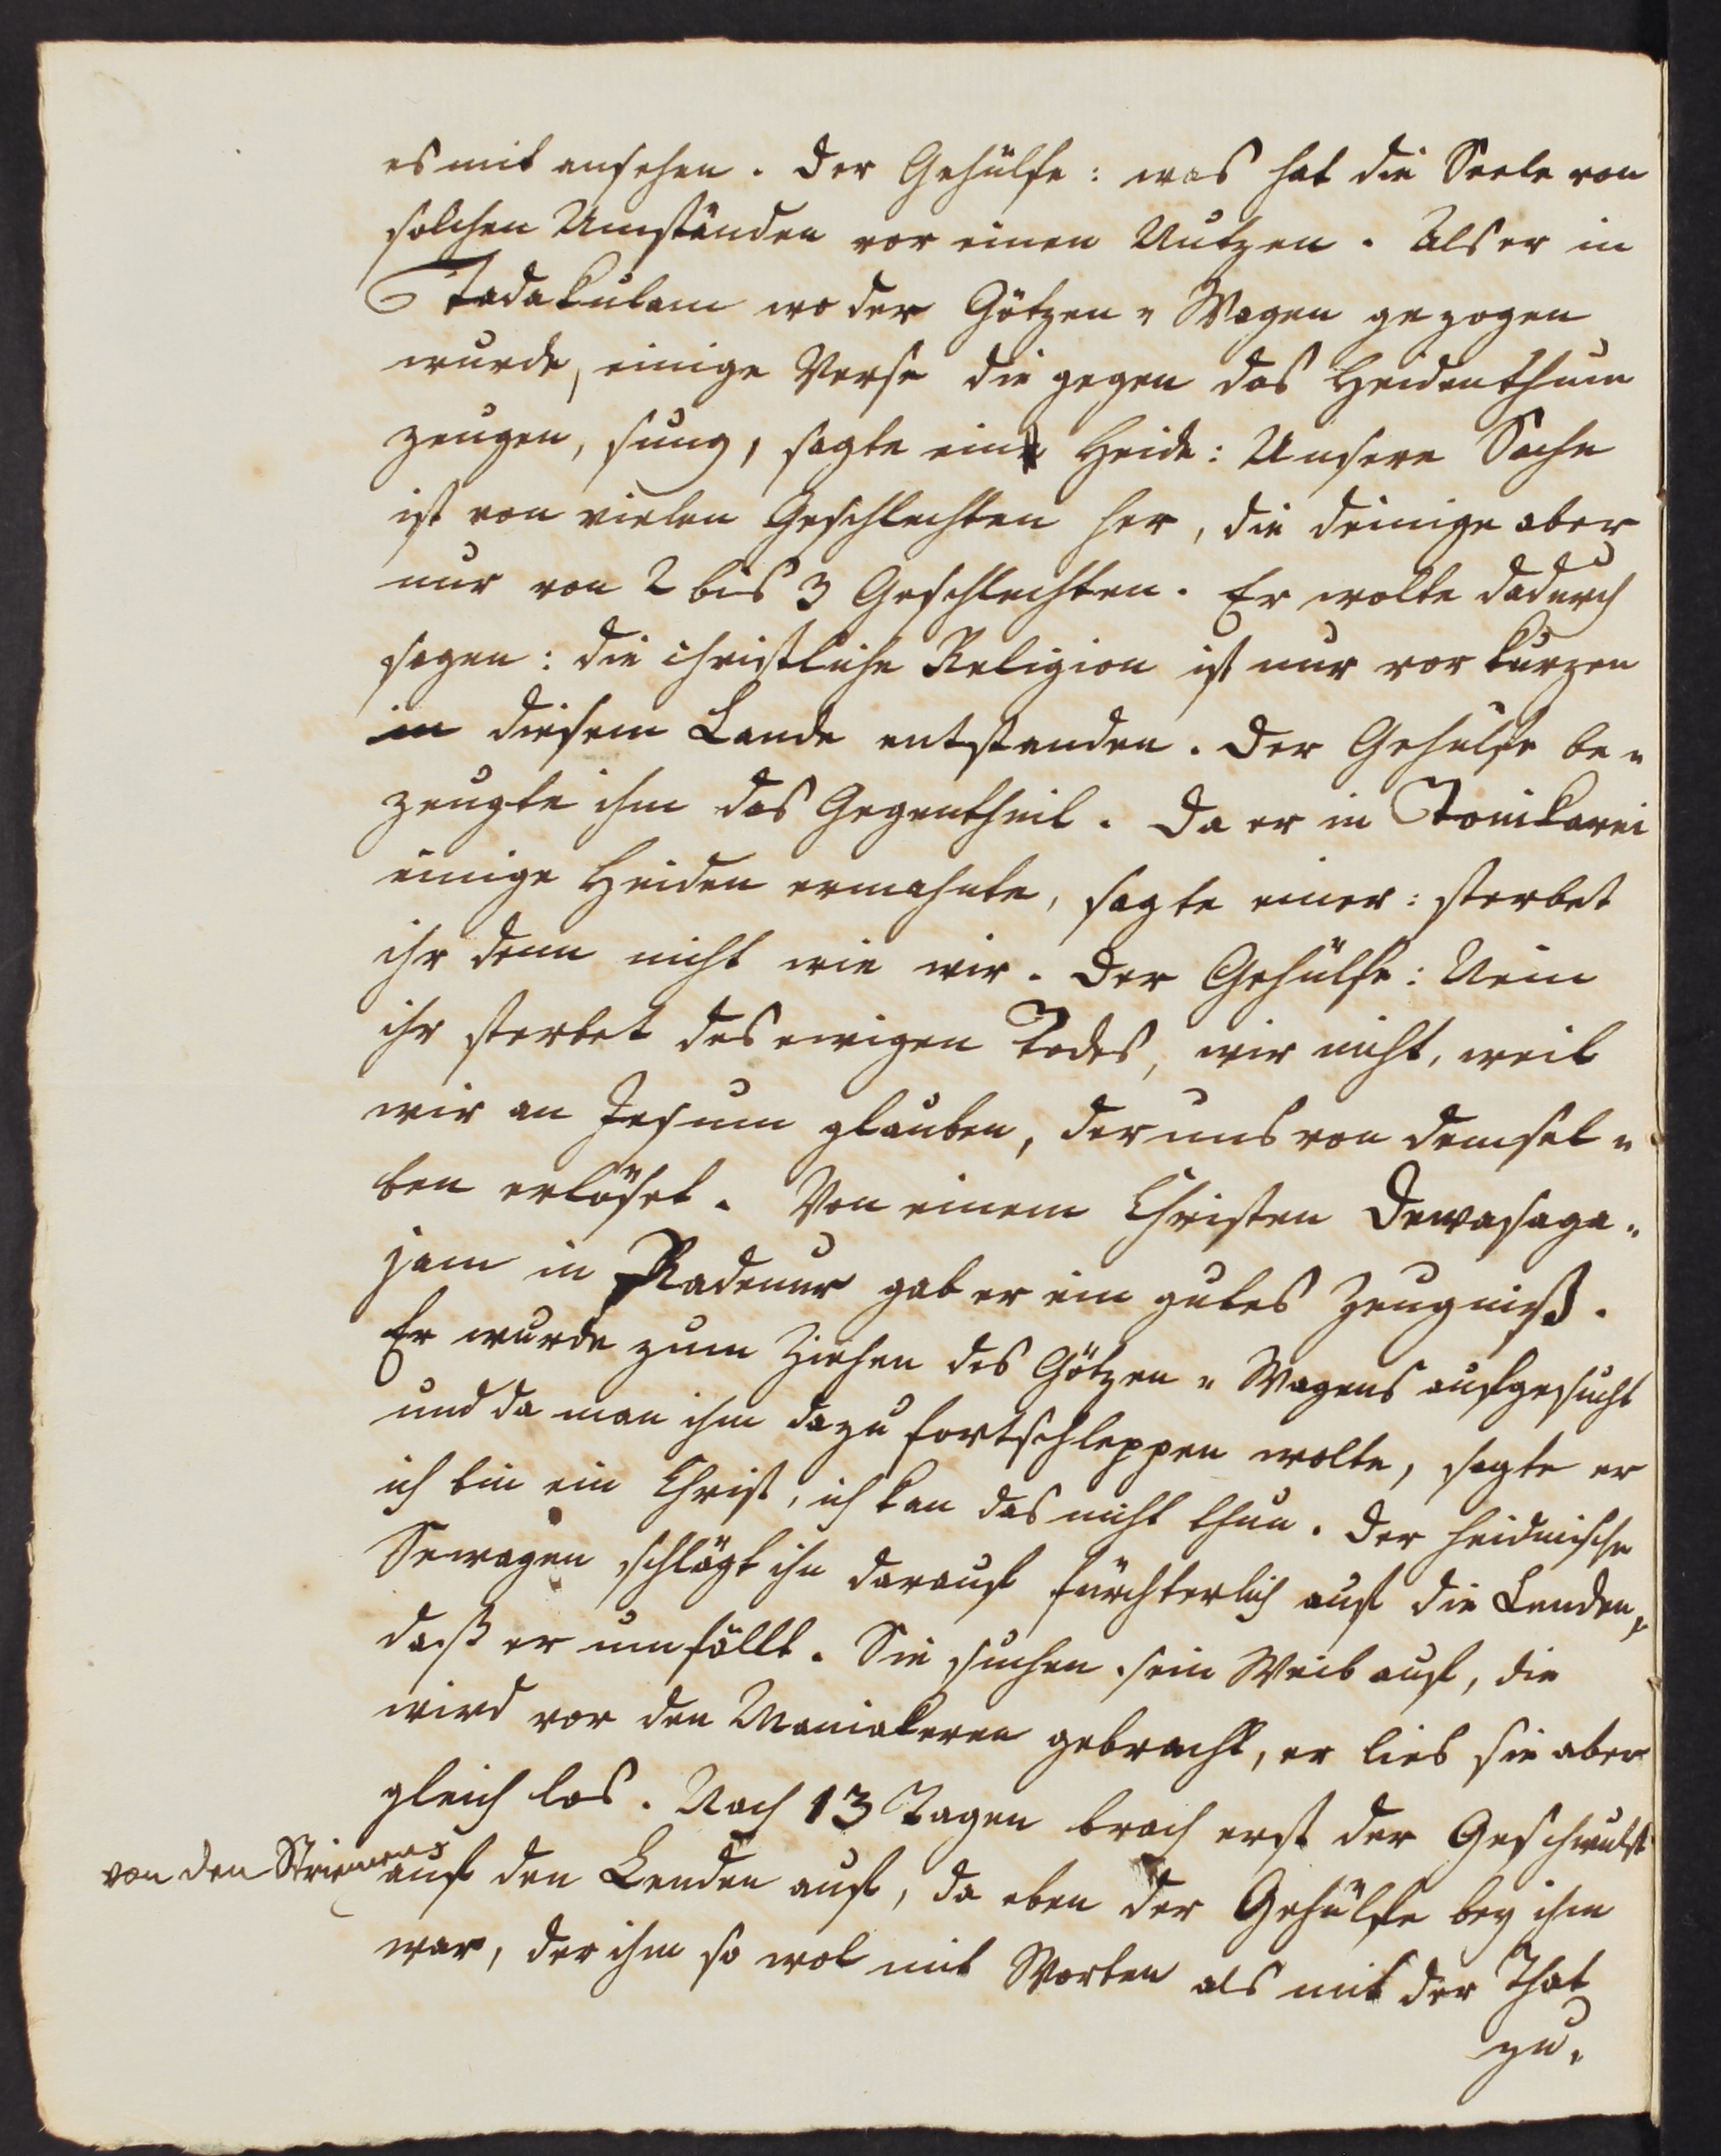 es mit ansehen. Der Gehülfe: was hat die Seele von
solchen Umständen vor einen Nutzen. Als er in
Tadakulam wo der Götzen-Wagen gezogen
wurde, einige Verse die gegen das Heidenthum
zeugen, sung, sagte ein Heide: Unsere Sache
ist von vielen Geschlechten her, die deinige aber
nur von 2 bis 3 Geschlechten. Er wolte dadurch
sagen: die christliche Religion ist nur vor kurzen
in diesem Lande entstanden. Der Gehülfe be-
zeugte ihm das Gegentheil. Da er in Tonikarei
einige Heiden ermahnte, sagte einer: sterbet
ihr denn nicht wie wir. Der Gehülfe: Nein
ihr sterbet des ewigen Todes, wir nicht, weil
wir an Jesum glauben, der uns von demsel-
ben erlöset. Von einem Christen Dewasaga-
jam in Radenur gab er ein gutes Zeugniß.
Er wurde zum Ziehen des Götzen-Wagens aufgesucht
und da man ihm dazu fortschleppen wolte, sagte er
ich bin ein Christ, ich kan das nicht thun. Der heidnische
Sewagen schlägt ihn darauf fürchterlich auf die Lenden,
daß er umfällt. Sie suchen sein Weib auf, die
wird vor den Maniakeren gebracht, er lies sie aber
gleich los. Nach 13 Tagen brach erst der Geschwulst
von den Striemens auf den Lenden auf, da eben der Gehülfe bey ihm
war, der ihm so wol mit Worten als mit der That
zu-